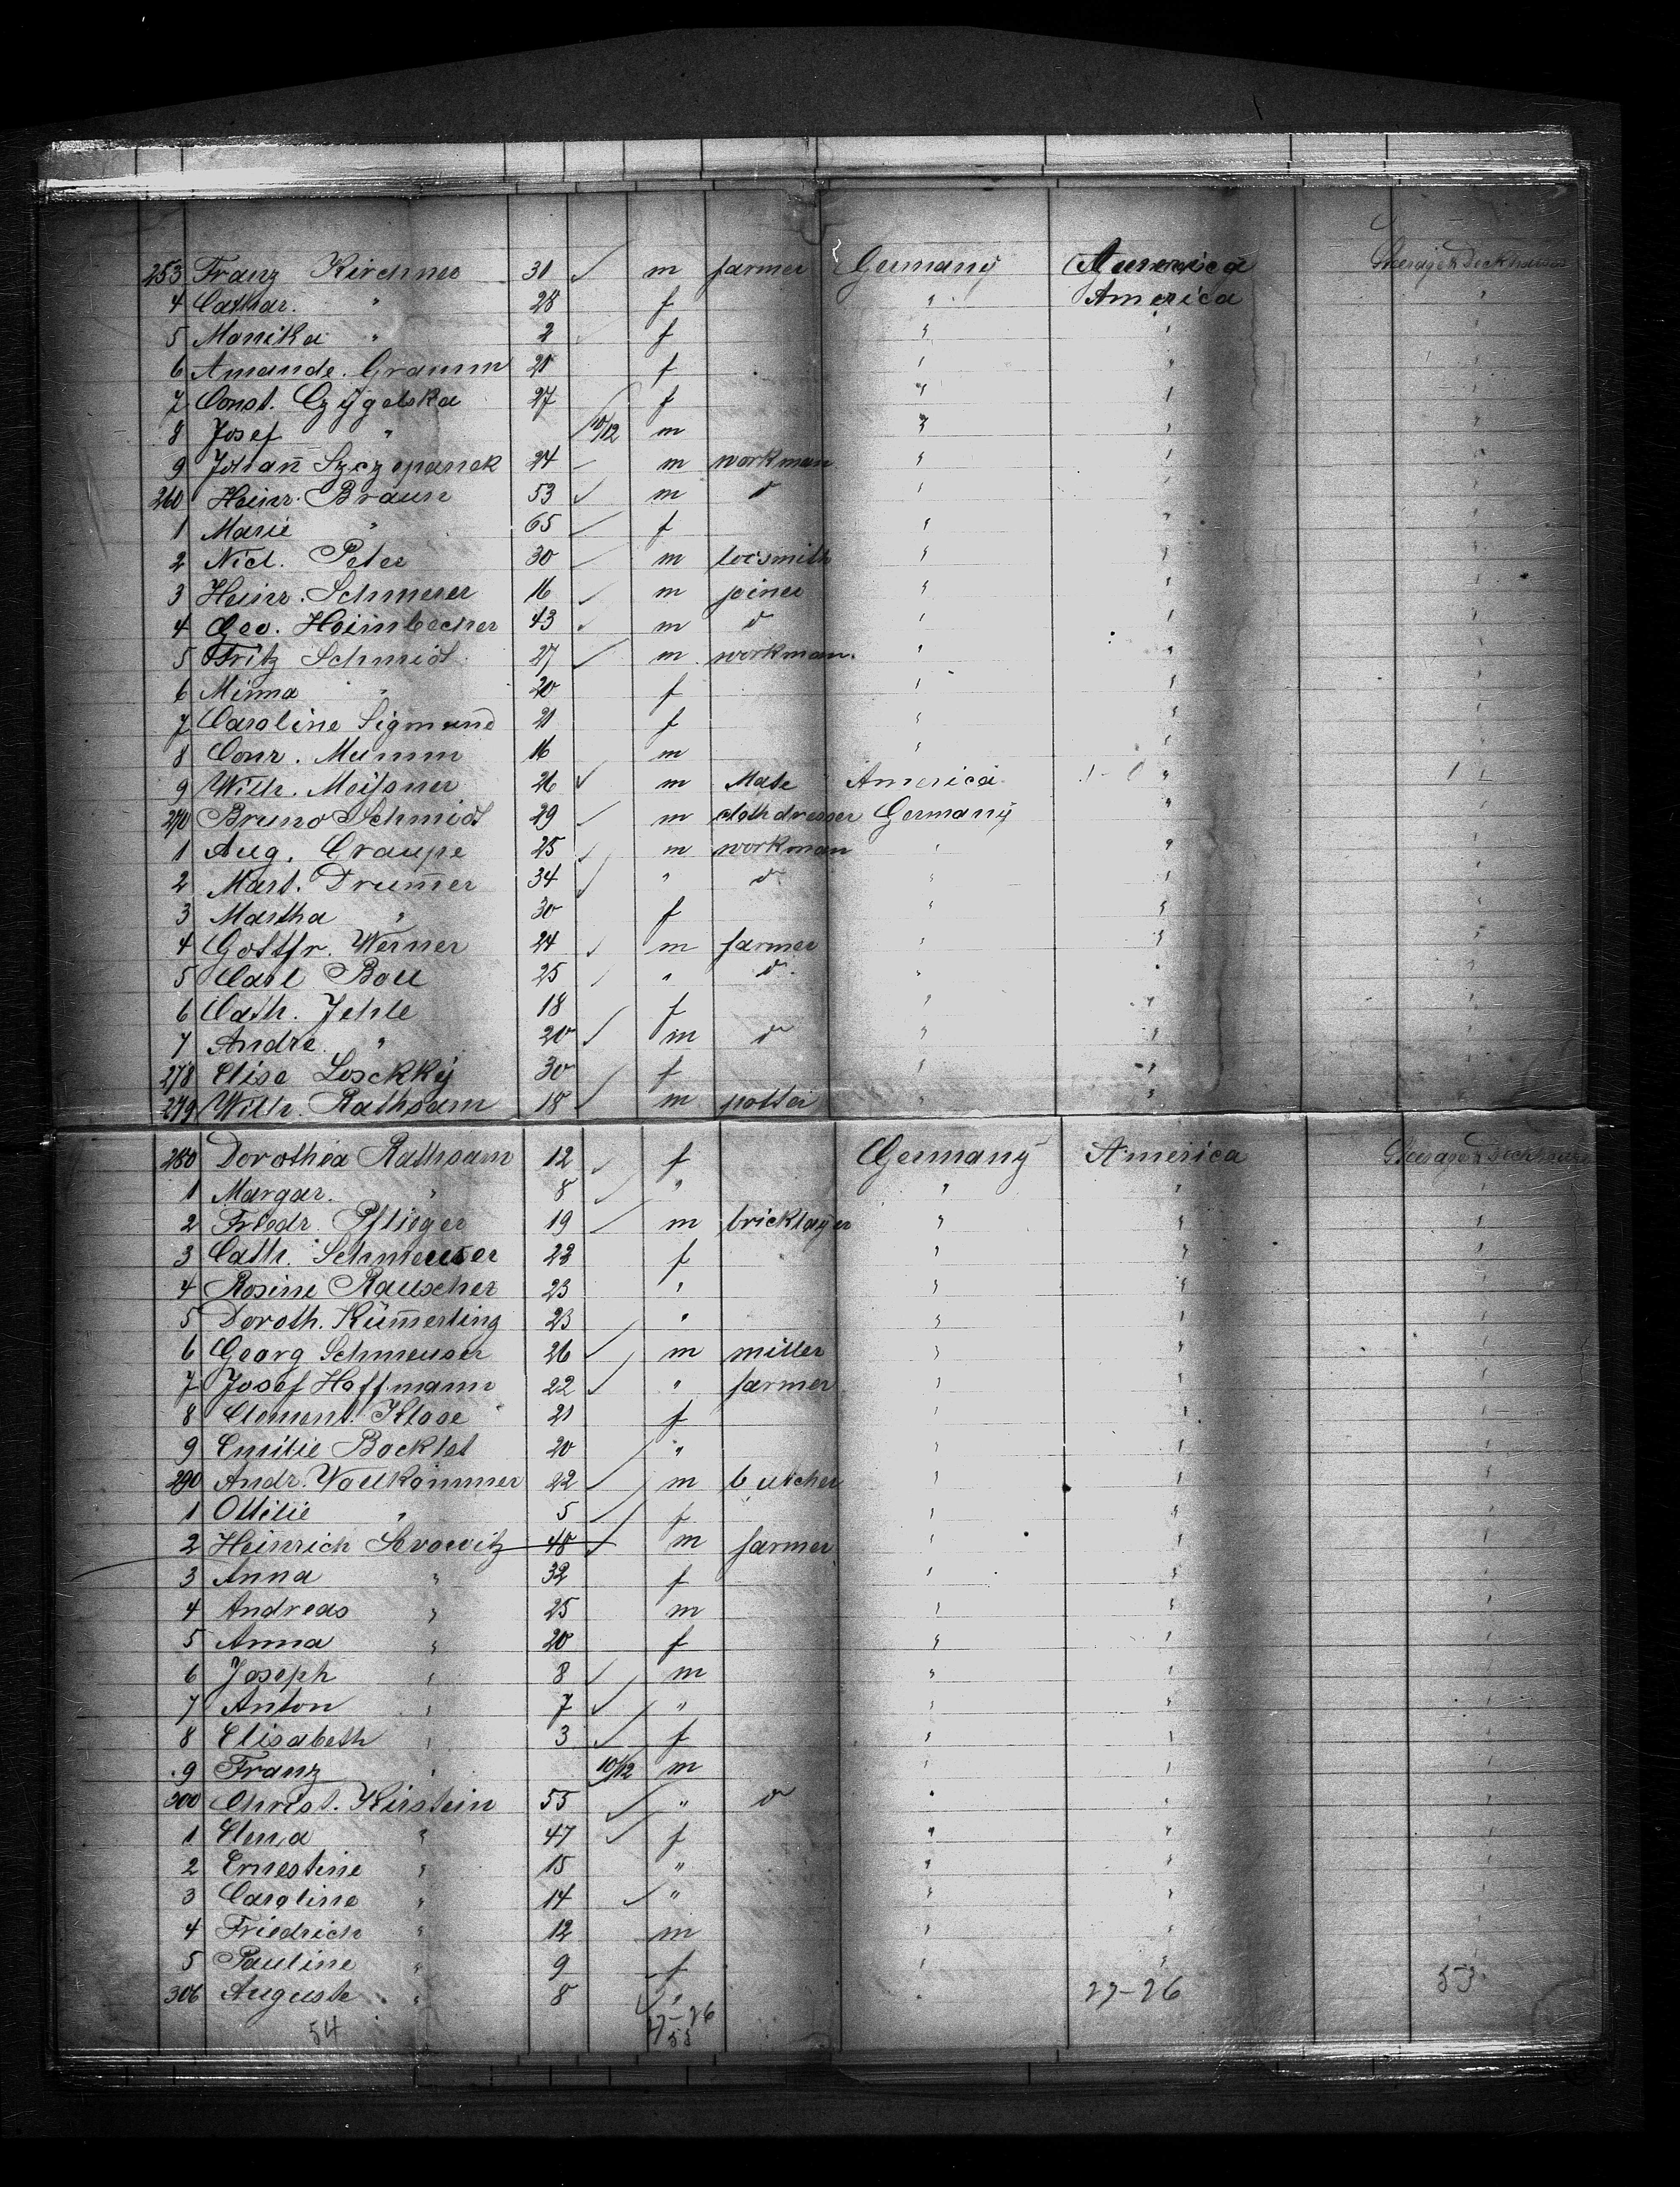 253 Franz Kirchner 31 m farmer Germany America Steerage & Deckhouse
4 Cathar. " 28 f " America "
5 Monika " 2 f " " "
6 Amande. Gramm 21 f " " "
7 Const. Czÿgelska 27 f " " "
8 Josef " 10/12 m " " "
9 Johan̄ Szczepanek 24 m workman " " "
260 Heinr. Braun 53 m d " " "
1 Marie " 65 f " " "
2 Nicl. Peter 30 m locsmith " " "
3 Heinr. Schmeser 16 m joiner " " "
4 Geo. Heimbecher 43 m d " " "
5 Fritz Schmidt 27 m workman. " " "
6 Minna " 20 f " " "
7 Caroline Sigmund 21 f " " "
8 Conr. Mumm 16 m " " "
9 Wilh. Meißner 26 m Mate America "
270 Bruno Schmidt 29 m clothdresser Germany " "
1 Aug. Craupe 25 m workman " " "
2 Mart. Drum̄er 34 " d " " "
3 Martha " 30 f " " "
4 Gottfr. Werner 24 m farmer " " "
5 Carl Boll 25 " d " " "
6 Cath. Jehle 18 f " " "
7 Andre " 20 m d " " "
278 Elise Losckkÿ 30 f " " "
279 Wilh. Rathsam 18 m potter " " "
280 Dorothea Rathsam 12 f Germany America Steerage & Deckhouse
1 Margar. " 8 " " " "
2 Friedr. Pflieger 19 m bricklayer " " "
3 Cath. Schmeuser 23 f " " "
4 Rosine Rauscher 23 " " " "
5 Doroth. Küm̄erling 23 " " " "
6 Georg Schmeuser 26 m miller " " "
7 Josef Hoffmann 22 " farmer " " "
8 Clement. Klose 21 f " " "
9 Emilie Bocklet 20 " " " "
290 Andr. Vollkommer 22 m butcher " " "
1 Ottilie " 5 f " " "
2 Heinrich 48 m farmer " " "
3 Anna " 32 f " " "
4 Andreas " 25 m " " "
5 Anna " 20 f " " "
6 Joseph " 8 m " " "
7 Anton " 7 " " " "
8 Elisabeth " 3 f " " "
9 Franz " 10/12 m " " "
300 Christ. Kirstein 55 " d " " "
1 Elena " 47 f " " "
2 Ernestine " 15 " " " "
3 Caroline " 14 " " " "
4 Friedrich " 12 m " " "
5 Pauline " 9 f " " "
306 Auguste " 8 " " 27-26 53
54 27-26
53